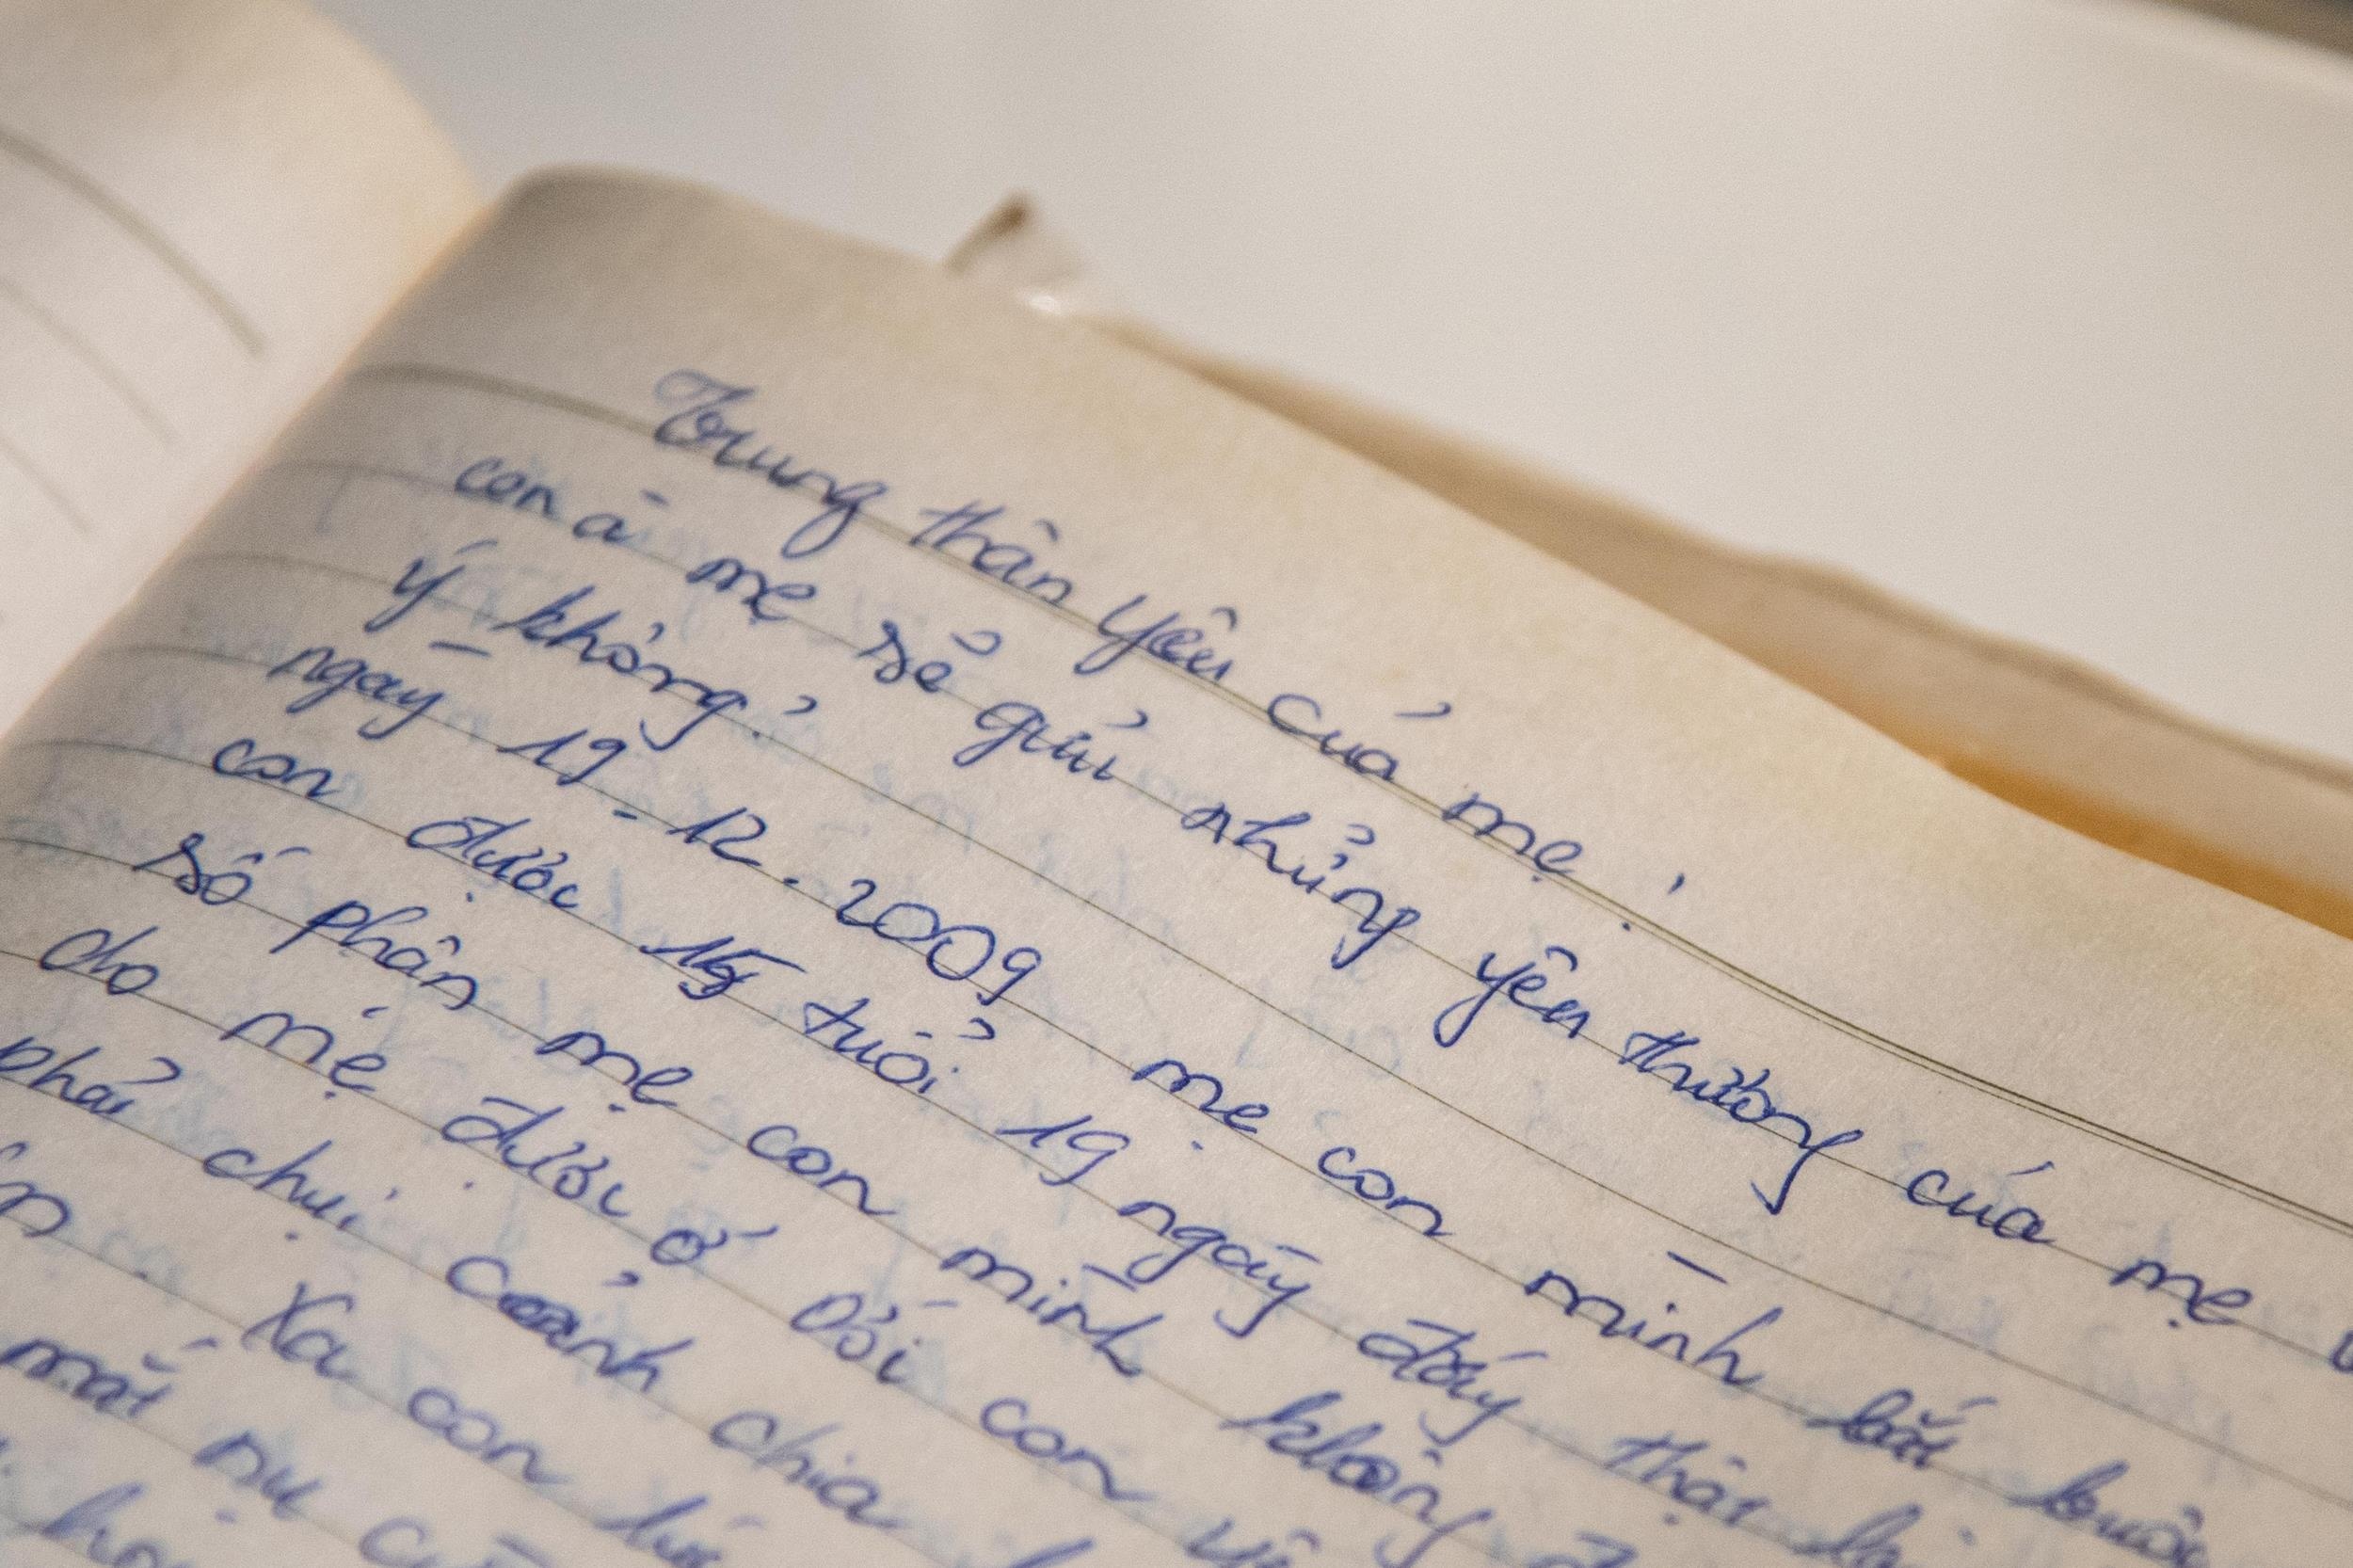 Trung thân yêu của mẹ !
con à mẹ sẽ gửi những yên thương của mẹ
ý không?
ngày 19 - 12 . 2009 mẹ con mình bắt buộc
con được 15 tuổi 19 ngày đấy thật là
số phận mẹ con mình không
cho mẹ được ở với con
phải chịu cảnh chia
Xa con lúc
mất nụ